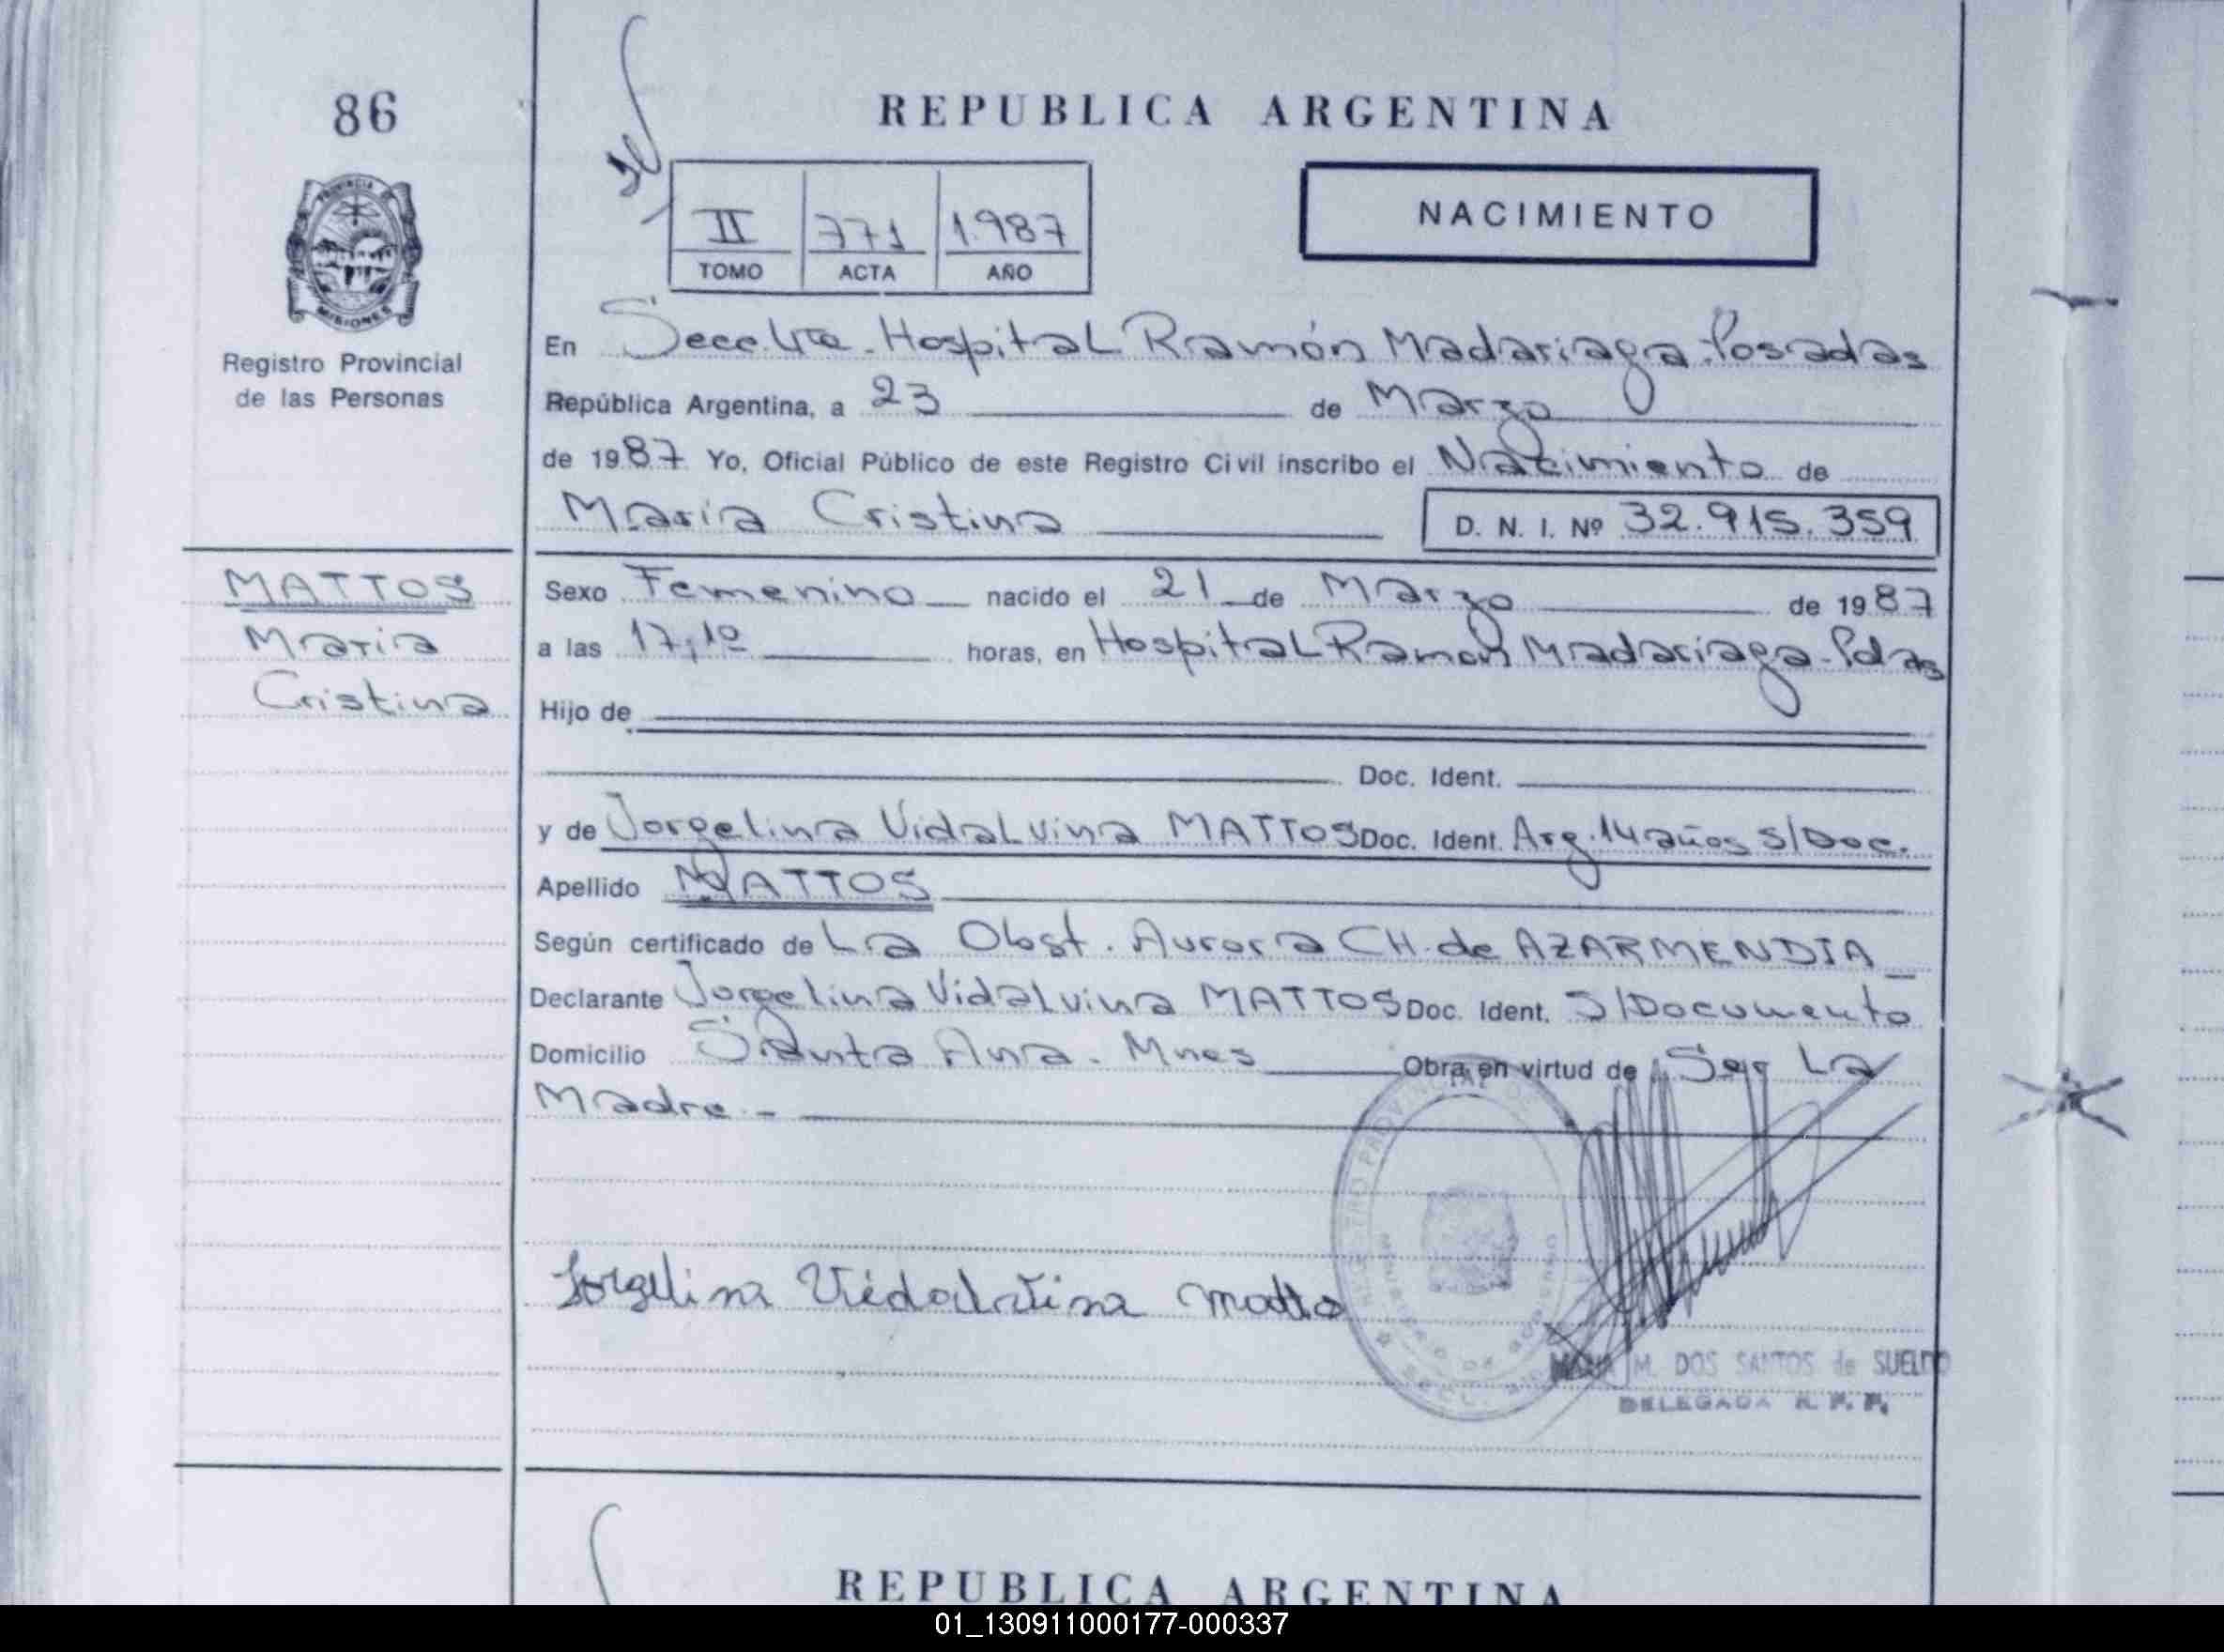 86
REPUBLICA ARGENTINA
II 771 1.987
TOMO ACTA AÑO
NACIMIENTO
PROVINCIA
MISIONES
Registro Provincial
de las Personas
En Secc. Hospital Ramón Madariaga. Posadas
República Argentina, a 23 de Marzo
de 1987 Yo, Oficial Público de este Registro Civil inscribo el Nacimiento de
Maria Cristina D. N. I. Nº 32.915.359
MATTOS
Maria
Cristina
Sexo Femenino nacido el 21 de Marzo de 1987
a las 17,10 horas, en Hospital Ramón Madariaga - Pdas
Hijo de
Doc. Ident.
y de Jorgelina Vidalvina MATTOS Doc. Ident. Arg. 14 años S/Doc.
Apellido MATTOS
Según certificado de La Obst. Aurora CH. de AZARMENDIA
Declarante Jorgelina Vidalvina MATTOS Doc. Ident. S/Documento
Domicilio Santa Ana. Mnes Obra en virtud de Ser La
Madre. -
Jorgelina Vidalvina Matto
M. DOS SANTOS de SUELDO
DELEGADA R. P. P.
REPUBLICA ARGENTINA
01_130911000177-000337